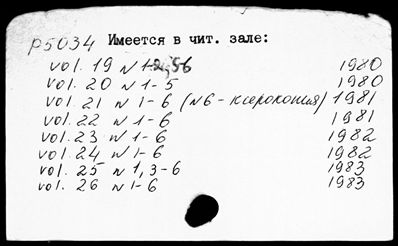 р5034 Имеется в чит. зале:
vol. 19 N 1-6 1980
vol. 20 N 1-5 1980
vol. 21 N 1-6 (N6-ксерокопия) 1981
vol. 22 N 1-6 1981
vol. 23 N 1-6 1982
vol. 24 N 1-6 1982
vol. 25 N 1, 3-6 1983
vol. 26 N 1-6 1983